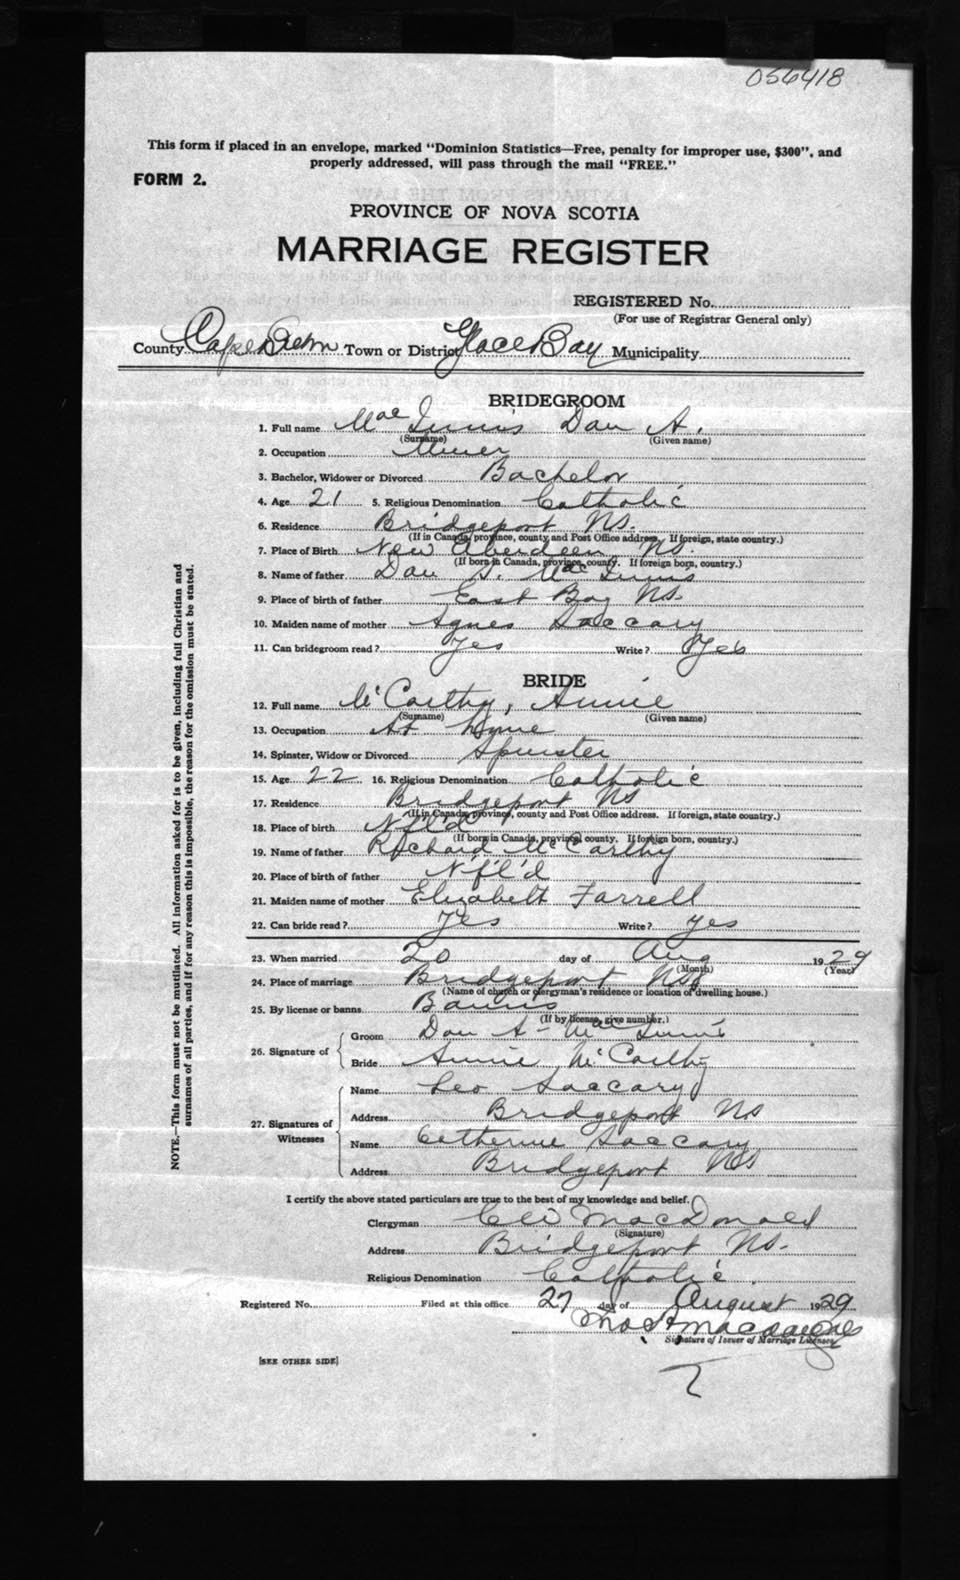 056418
This form if placed in an envelope, marked "Dominion Statistics—Free, penalty for improper use, $300", and
properly addressed, will pass through the mail "FREE."
FORM 2.
PROVINCE OF NOVA SCOTIA
MARRIAGE REGISTER
REGISTERED No.
(For use of Registrar General only)
County Cape Breton Town or District Glace Bay Municipality
BRIDEGROOM
1. Full name MacInnis Dan A.
(Surname) (Given name)
2. Occupation Miner
3. Bachelor, Widower or Divorced Bachelor
4. Age 21 5. Religious Denomination Catholic
6. Residence Bridgeport NS.
(If in Canada, province, county and Post Office address. If foreign, state country.)
7. Place of Birth New Aberdeen NS.
(If born in Canada, province, county. If foreign born, country.)
8. Name of father Dan S. MacInnis
9. Place of birth of father East Bay NS.
10. Maiden name of mother Agnes Saccary
11. Can bridegroom read? Yes Write? Yes
BRIDE
12. Full name McCarthy, Annie
(Surname) (Given name)
13. Occupation At Home
14. Spinster, Widow or Divorced Spinster
15. Age 22 16. Religious Denomination Catholic
17. Residence Bridgeport NS
(If in Canada, province, county and Post Office address. If foreign, state country.)
18. Place of birth Nfl'd
(If born in Canada, province, county. If foreign born, country.)
19. Name of father Richard McCarthy
20. Place of birth of father N'f'l'd
21. Maiden name of mother Elizabeth Farrell
22. Can bride read? Yes Write? Yes
23. When married 20 day of Aug 1929
(Month) (Year)
24. Place of marriage Bridgeport NS
(Name of church or clergyman's residence or location of dwelling house.)
25. By license or banns Banns
(If by license, give number.)
26. Signature of Groom Dan A- MacInnis
Bride Annie McCarthy
27. Signatures of Witnesses Name Leo Saccary
Address Bridgeport NS
Name Cetherine Saccary
Address Bridgeport NS
I certify the above stated particulars are true to the best of my knowledge and belief.
Clergyman MacDonald
(Signature)
Address Bridgeport NS.
Religious Denomination Catholic.
Registered No. Filed at this office 27 day of August 1929
Signature of Issuer of Marriage Licenses
[SEE OTHER SIDE]
NOTE.—This form must not be mutilated. All information asked for is to be given, including full Christian and
surnames of all parties, and if for any reason this is impossible, the reason for the omission must be stated.